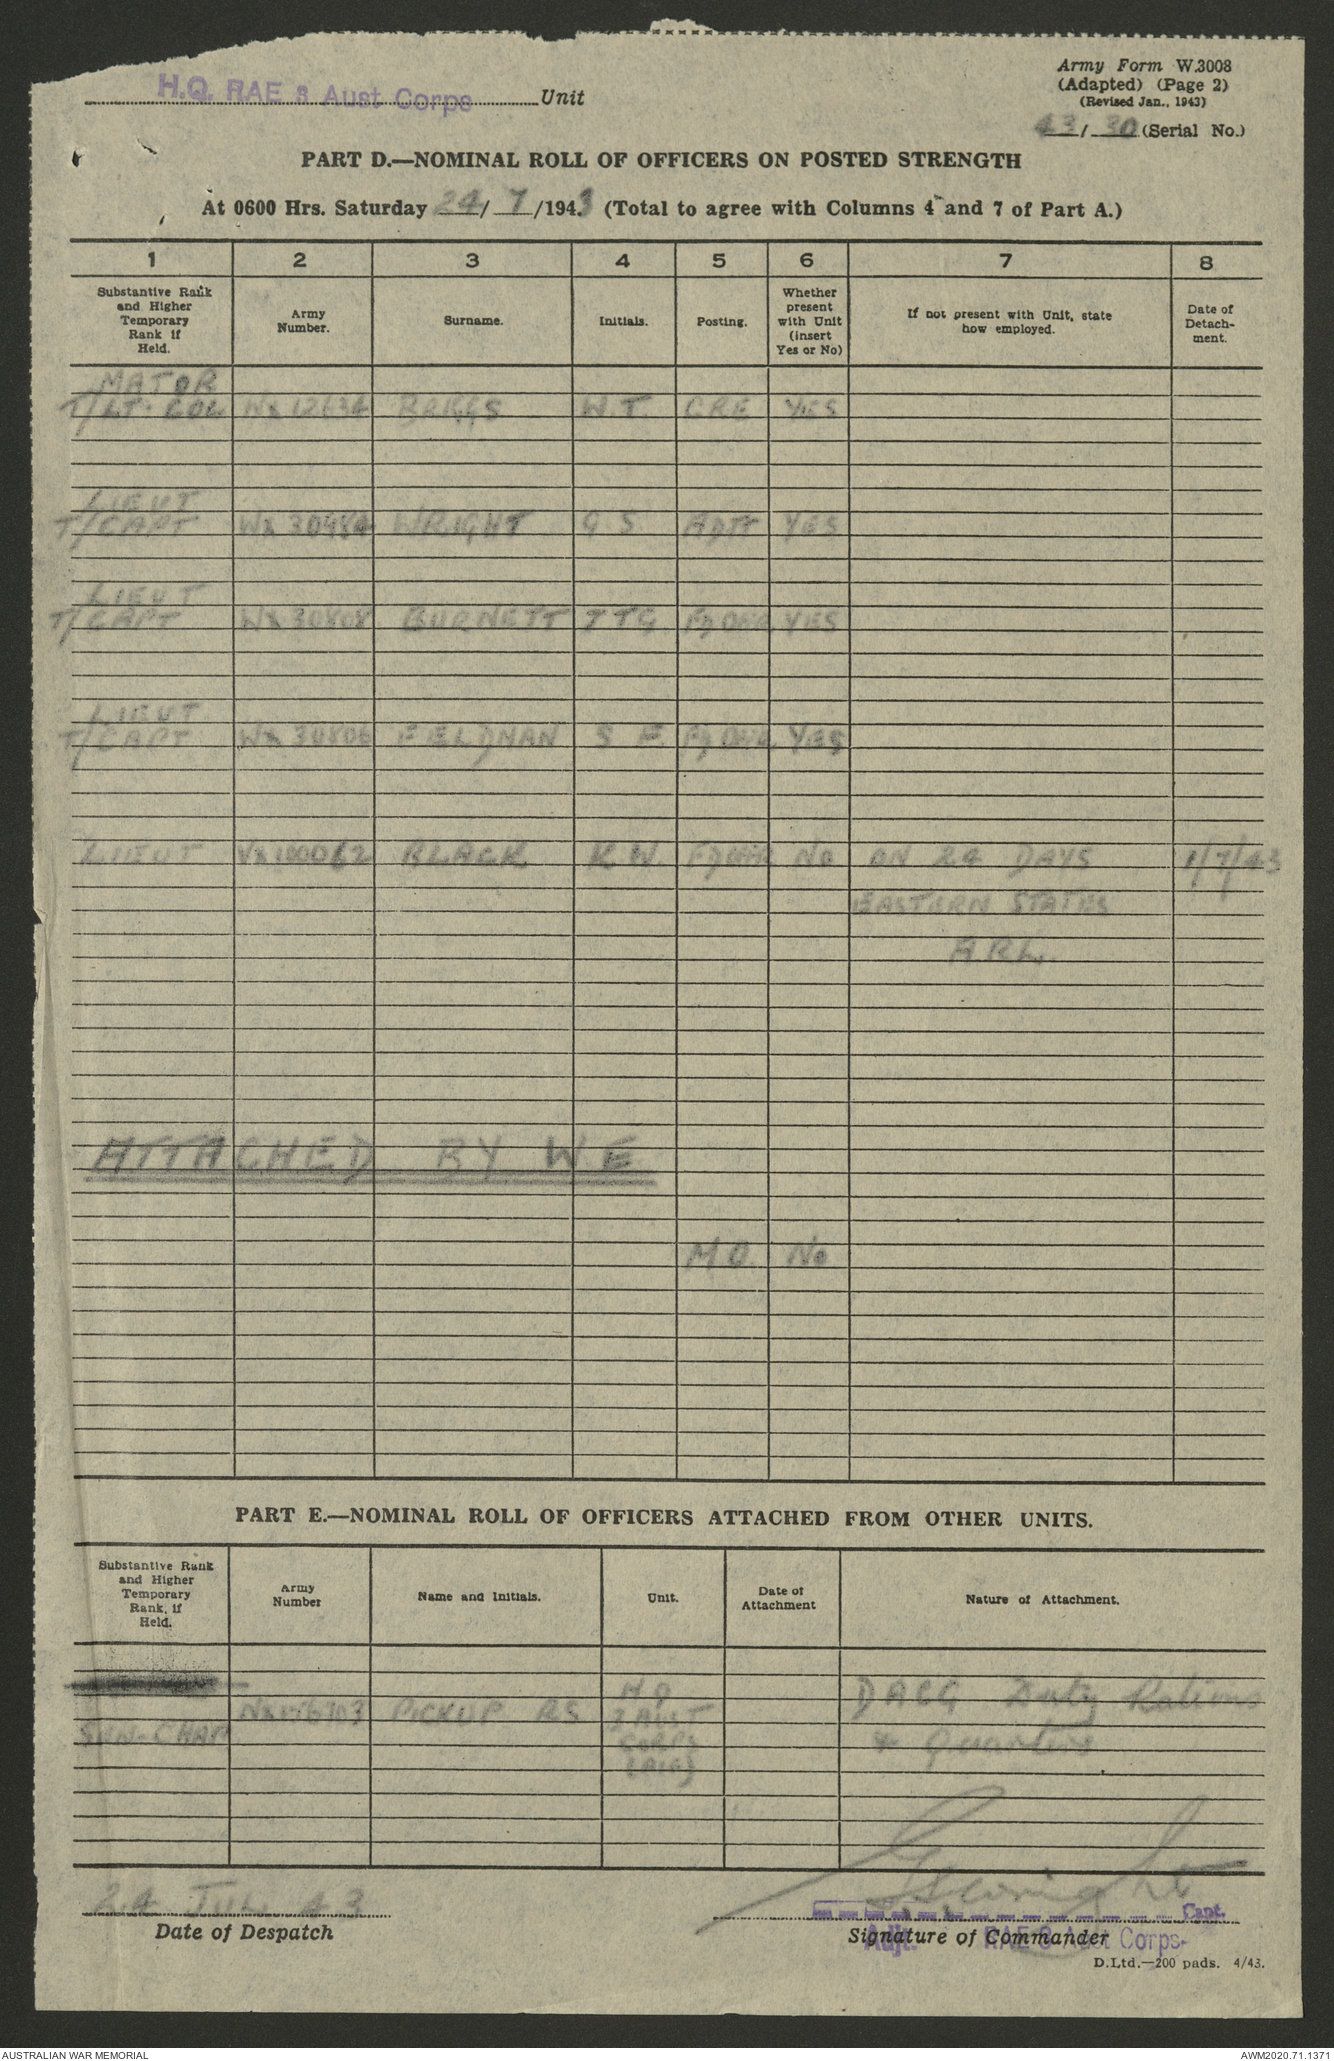 H.Q. RAE 3 Aust Corps Unit
Army Form W.3008
(Adapted) (Page 2)
(Revised Jan., 1943)
43/30 (Serial No.)
PART D.—NOMINAL ROLL OF OFFICERS ON POSTED STRENGTH
At 0600 Hrs. Saturday 24/7/1943 (Total to agree with Columns 4 and 7 of Part A.)
1 2 3 4 5 6 7 8
Substantive Rank and Higher Temporary Rank if Held.
Army Number.
Surname.
Initials.
Posting.
Whether present with Unit (insert Yes or No)
If not present with Unit, state how employed.
Date of Detachment.
MAJOR
T/LT. COL Nx 12634 BRIGGS W.T. CRE YES
LIEUT
T/CAPT Wx 30484 WRIGHT G S ADJT YES
LIEUT
T/CAPT Wx 30808 BURNETT J T G. YES
LIEUT
T/CAPT Wx 30806 FELDMAN S F. YES
LIEUT Vx 100062 BLACK K W. No ON 24 DAYS 1/7/43
EASTERN STATES
ARL.
ATTACHED BY W E
M O. No
PART E.—NOMINAL ROLL OF OFFICERS ATTACHED FROM OTHER UNITS.
Substantive Rank and Higher Temporary Rank, if Held.
Army Number
Name and Initials.
Unit.
Date of Attachment
Nature of Attachment.
SEN-CHAP Nx 176103 PICKUP RS
HQ
3 AUST
CORPS
(AIF)
DACG Duty Rations
& Quarters
24 JUL 43
Date of Despatch
GSWright
Capt.
Signature of Commander
Adjt. RAE 3 Aust Corps
D.Ltd.—200 pads. 4/43.
AUSTRALIAN WAR MEMORIAL
AWM2020.71.1371